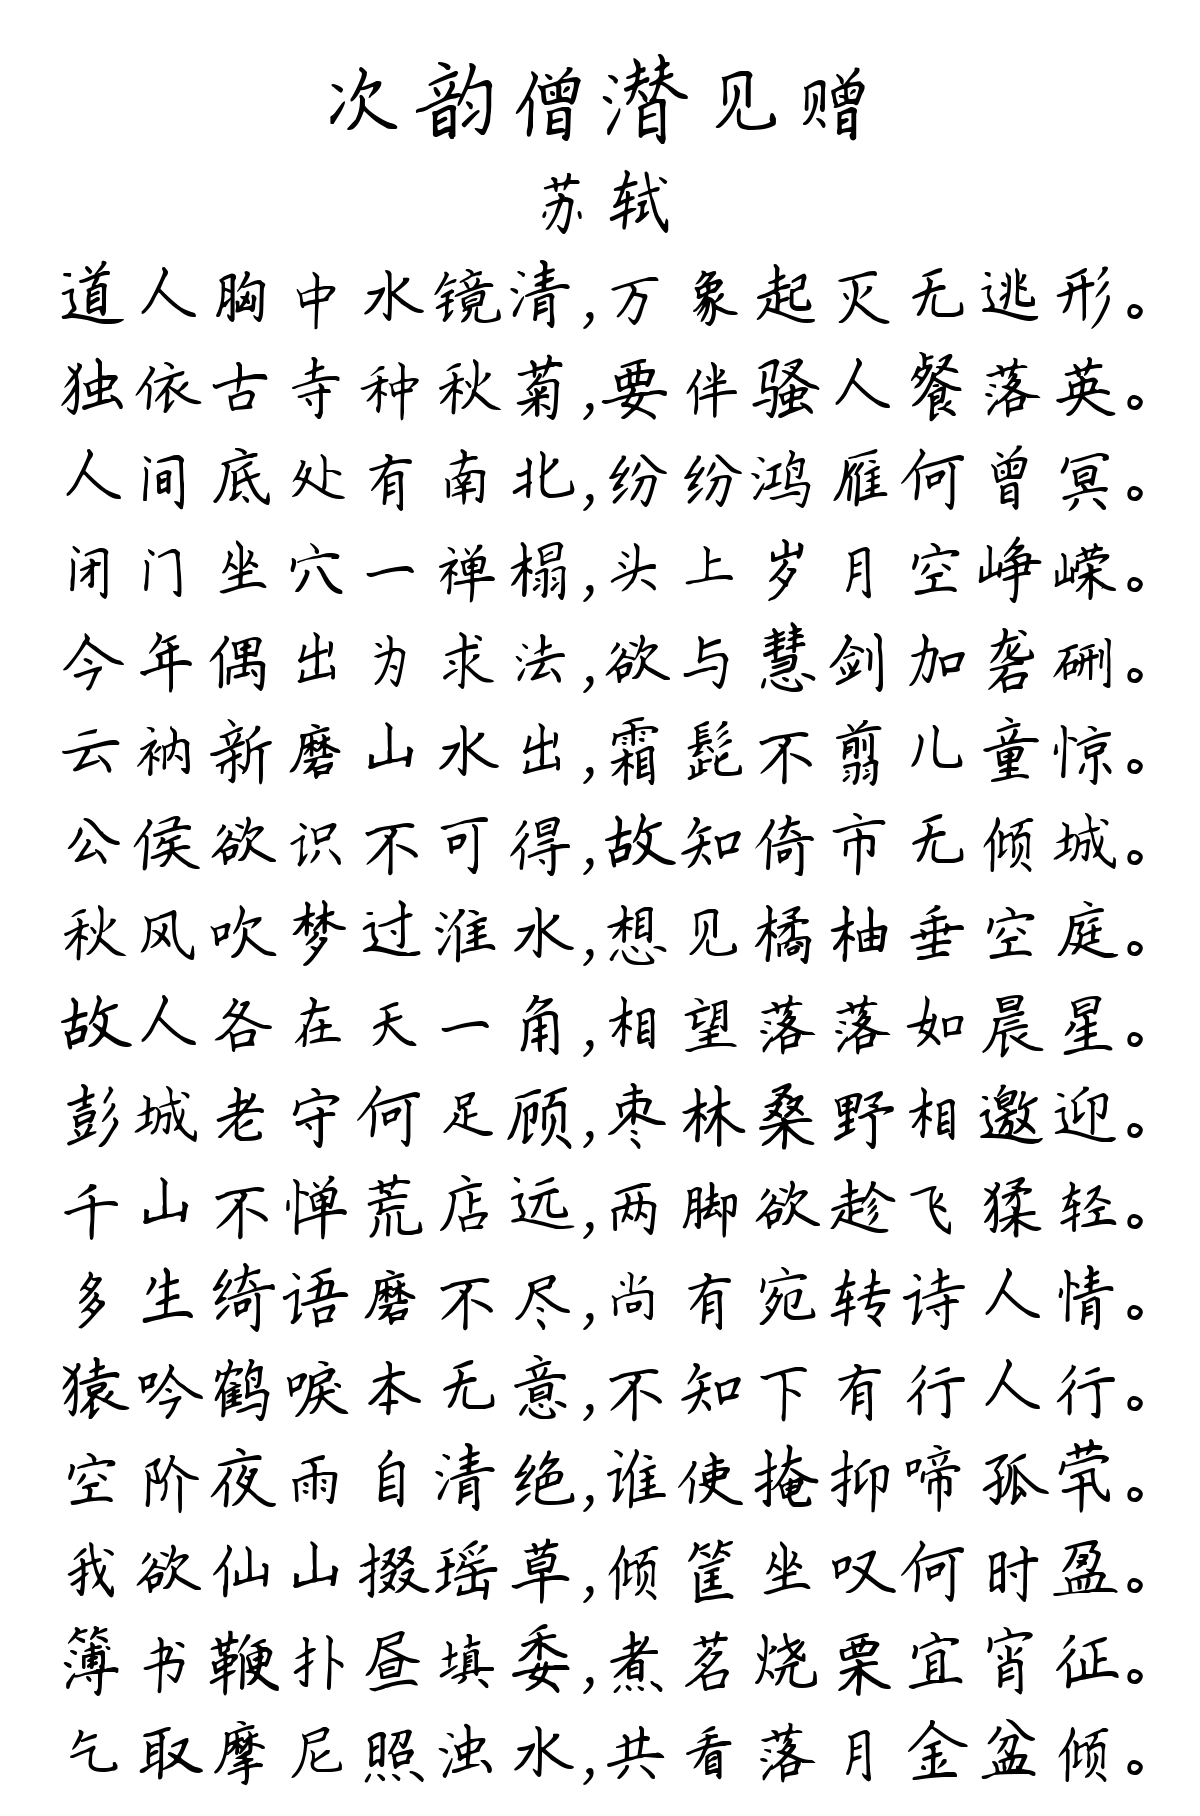 次韵僧潜见赠
苏轼
道人胸中水镜清,万象起灭无逃形。
独依古寺种秋菊,要伴骚人餐落英。
人间底处有南北,纷纷鸿雁何曾冥。
闭门坐穴一禅榻,头上岁月空峥嵘。
今年偶出为求法,欲与慧剑加砻硎。
云衲新磨山水出,霜髭不翦儿童惊。
公侯欲识不可得,故知倚市无倾城。
秋风吹梦过淮水,想见橘柚垂空庭。
故人各在天一角,相望落落如晨星。
彭城老守何足顾,枣林桑野相邀迎。
千山不惮荒店远,两脚欲趁飞猱轻。
多生绮语磨不尽,尚有宛转诗人情。
猿吟鹤唳本无意,不知下有行人行。
空阶夜雨自清绝,谁使掩抑啼孤茕。
我欲仙山掇瑶草,倾筐坐叹何时盈。
簿书鞭扑昼填委,煮茗烧栗宜宵征。
乞取摩尼照浊水,共看落月金盆倾。